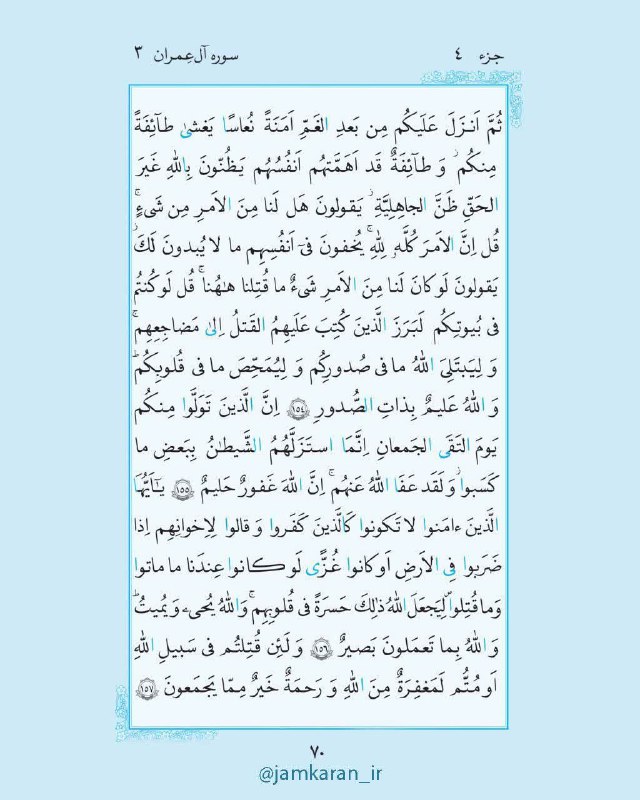 جزء ٤
سوره آل‌عِمران ٣
ثُمَّ اَنزَلَ عَلَيكُم مِن بَعدِ الغَمِّ اَمَنَةً نُعاسًا يَغشىٰ طآئِفَةً
مِنكُم ۖ وَ طآئِفَةٌ قَد اَهَمَّتهُم اَنفُسُهُم يَظُنّونَ بِاللهِ غَيرَ
الحَقِّ ظَنَّ الجاهِلِيَّةِ ۖ يَقولونَ هَل لَنا مِنَ الاَمرِ مِن شَىءٍ ۗ
قُل اِنَّ الاَمرَ كُلَّهُ لِلهِ ۗ يُخفونَ فىٓ اَنفُسِهِم ما لا يُبدونَ لَكَ ۖ
يَقولونَ لَو كانَ لَنا مِنَ الاَمرِ شَىءٌ ما قُتِلنا هٰهُنا ۗ قُل لَو كُنتُم
فى بُيوتِكُم لَبَرَزَ الَّذينَ كُتِبَ عَلَيهِمُ القَتلُ اِلىٰ مَضاجِعِهِم ۖ
وَ لِيَبتَلِىَ اللهُ ما فى صُدورِكُم وَ لِيُمَحِّصَ ما فى قُلوبِكُم ۗ
وَ اللهُ عَليمٌ بِذاتِ الصُّدورِ ﴿١٥٤﴾ اِنَّ الَّذينَ تَوَلَّوا مِنكُم
يَومَ التَقَى الجَمعانِ اِنَّمَا استَزَلَّهُمُ الشَّيطٰنُ بِبَعضِ ما
كَسَبوا ۖ وَ لَقَد عَفَا اللهُ عَنهُم ۗ اِنَّ اللهَ غَفورٌ حَليمٌ ﴿١٥٥﴾ يٰٓاَيُّهَا
الَّذينَ ءامَنوا لا تَكونوا كَالَّذينَ كَفَروا وَ قالوا لِاِخوانِهِم اِذا
ضَرَبوا فِى الاَرضِ اَو كانوا غُزًّى لَو كانوا عِندَنا ما ماتوا
وَ ما قُتِلوا لِيَجعَلَ اللهُ ذٰلِكَ حَسرَةً فى قُلوبِهِم ۗ وَ اللهُ يُحيىء وَ يُميتُ ۗ
وَ اللهُ بِما تَعمَلونَ بَصيرٌ ﴿١٥٦﴾ وَ لَئِن قُتِلتُم فى سَبيلِ اللهِ
اَو مُتُّم لَمَغفِرَةٌ مِنَ اللهِ وَ رَحمَةٌ خَيرٌ مِمّا يَجمَعونَ ﴿١٥٧﴾
٧٠
@jamkaran_ir